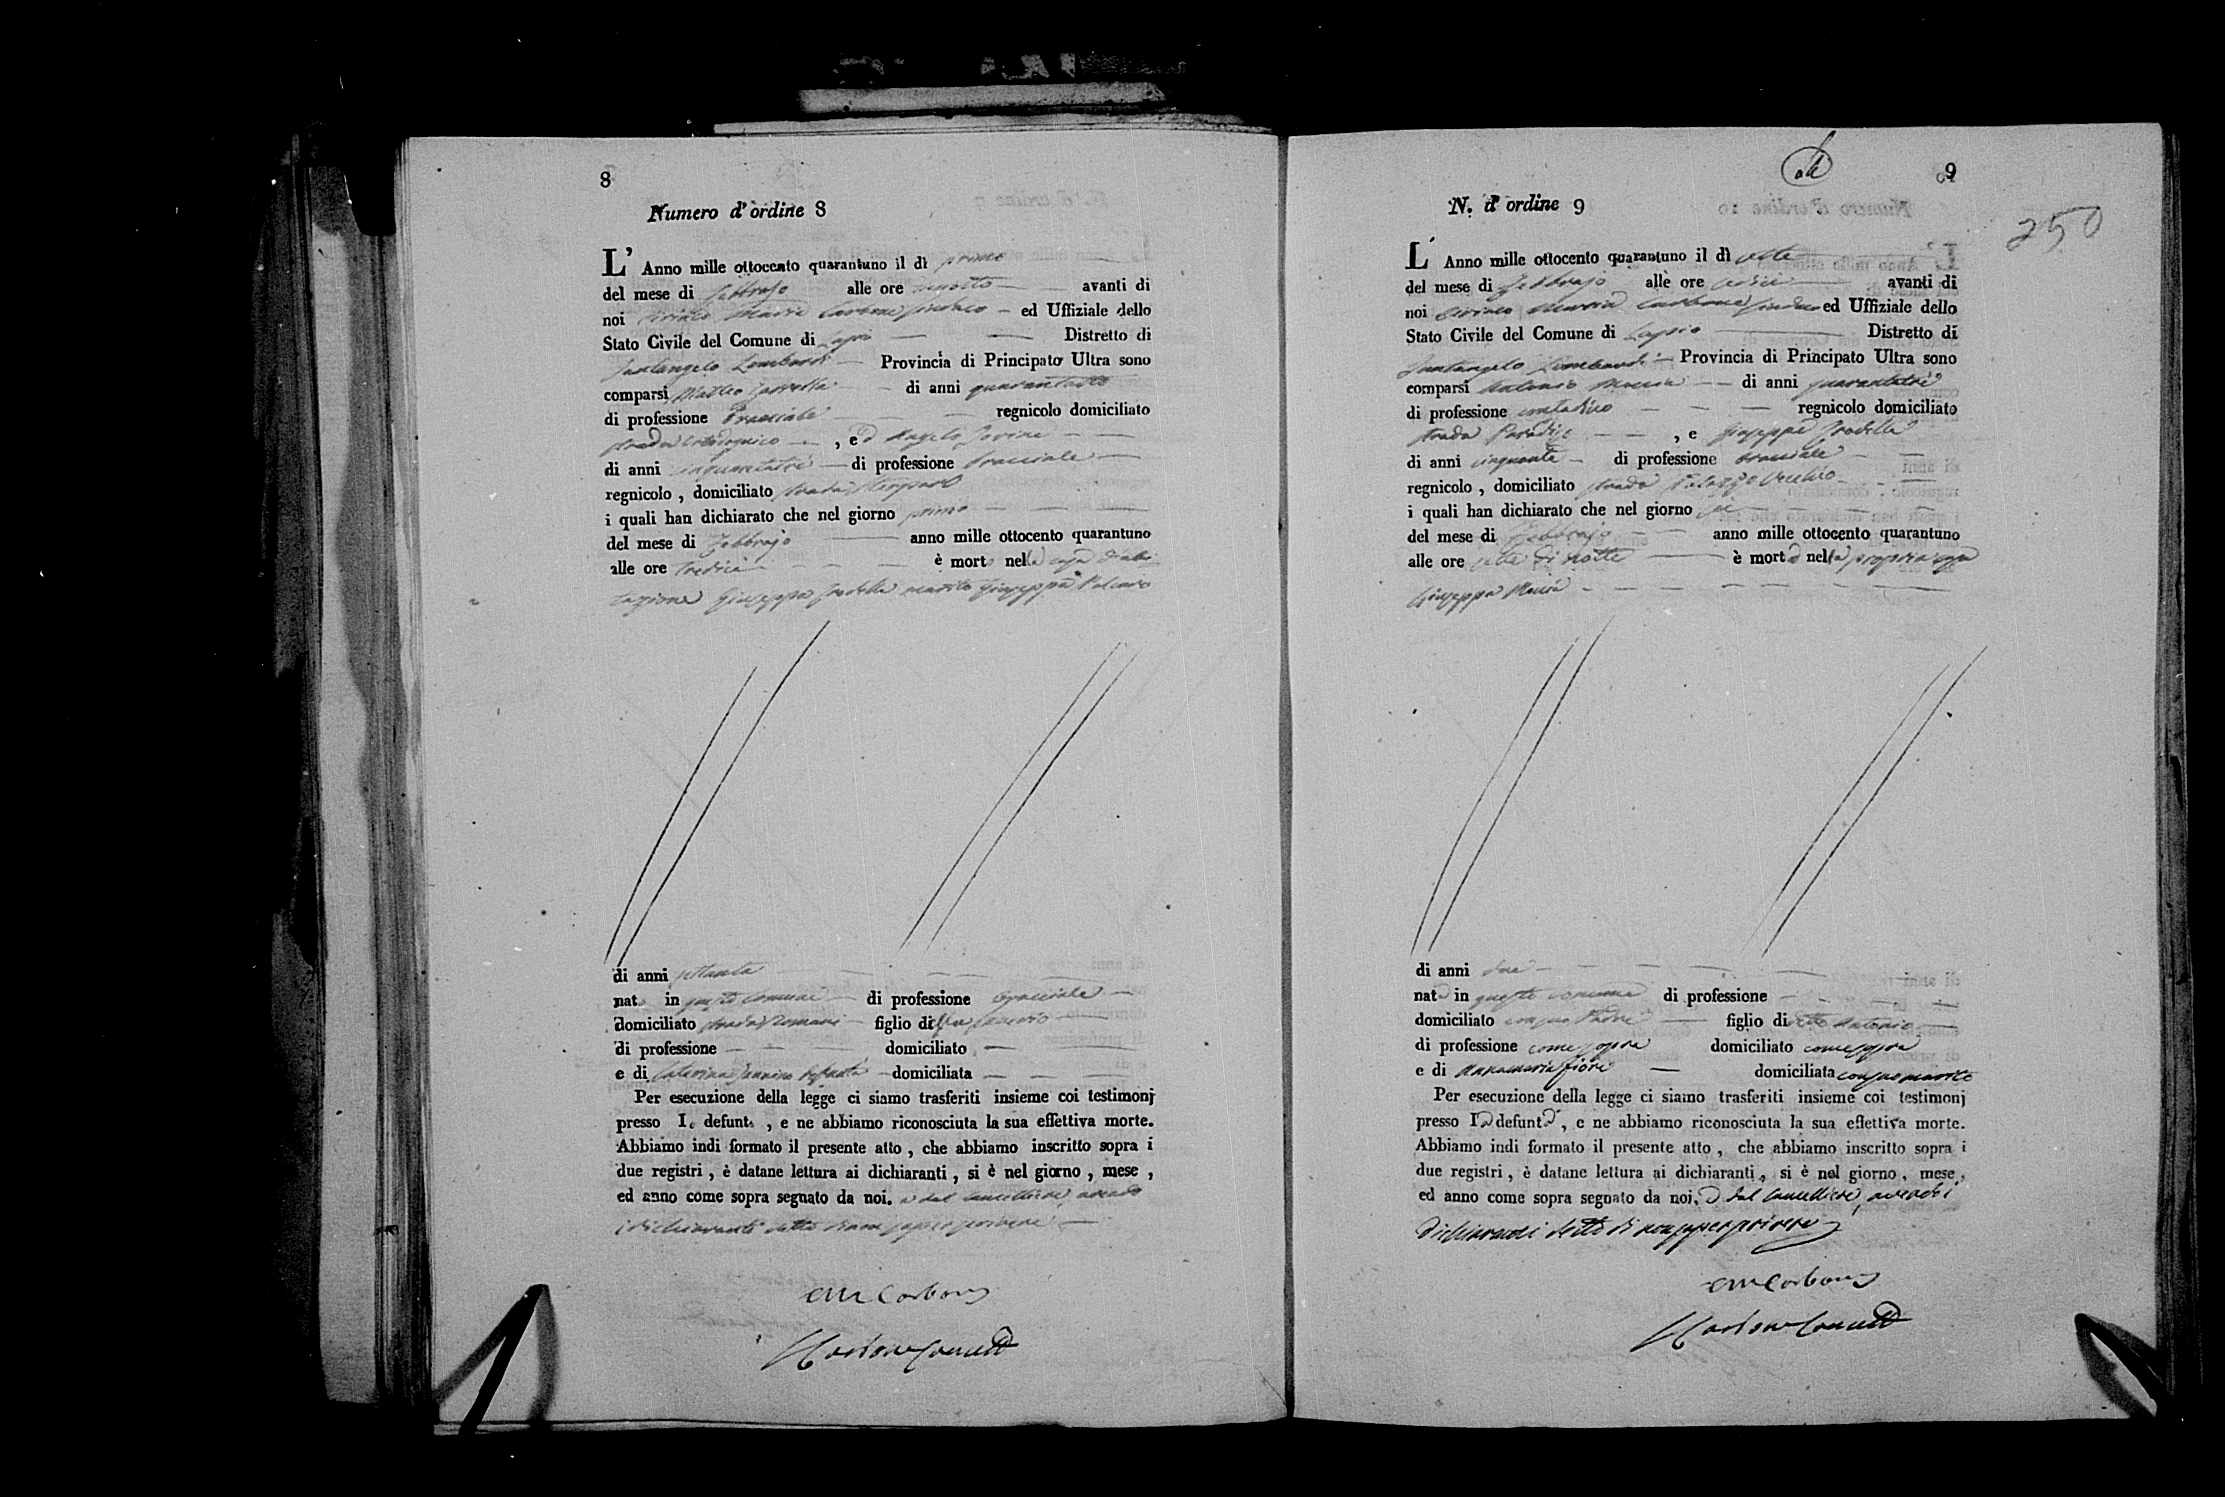 8
Numero d' ordine 8
L' Anno mille ottocento quarantuno il dì primo
del mese di Febbrajo alle ore avanti di
noi Ciriaco Maria Carbone Sindaco ed Uffiziale dello
Stato Civile del Comune di Lapio Distretto di
Santangelo Lombardi Provincia di Principato Ultra sono
comparsi Matteo di anni
di professione Bracciale regnicolo domiciliato
strada , ed Angelo
di anni cinquantatre di professione bracciale
regnicolo , domiciliato strada
i quali han dichiarato che nel giorno primo
del mese di Febbrajo anno mille ottocento quarantuno
alle ore tredici è morto nella casa d'abi
tazione Giuseppe marito Giuseppa
di anni settanta
nato in questo Comune di professione bracciale
domiciliato strada figlio di
di professione domiciliato
e di Caterina domiciliata
Per esecuzione della legge ci siamo trasferiti insieme coi testimonj
presso Il defunto , e ne abbiamo riconosciuta la sua effettiva morte.
Abbiamo indi formato il presente atto , che abbiamo inscritto sopra i
due registri , è datane lettura ai dichiaranti , si è nel giorno , mese ,
ed anno come sopra segnato da noi. e dal Cancelliere avendo
i dichiaranti detto di non saper scrivere
CM Carbone
Carbone
9
N. d' ordine 9
250
L' Anno mille ottocento quarantuno il dì sette
del mese di Febbrajo alle ore avanti di
noi Ciriaco Maria Carbone Sindaco ed Uffiziale dello
Stato Civile del Comune di Lapio Distretto di
Santangelo Lombardi Provincia di Principato Ultra sono
comparsi Antonio di anni quarantatre
di professione contadino regnicolo domiciliato
strada Paradiso , e Giuseppe
di anni cinquanta di professione bracciale
regnicolo , domiciliato strada Palazzo Vecchio
i quali han dichiarato che nel giorno sei
del mese di Febbrajo anno mille ottocento quarantuno
alle ore sette di notte è morta nella propria casa
Giuseppa
di anni due
nata in questo comune di professione
domiciliato con suo Padre figlio di detto Antonio
di professione come sopra domiciliato come sopra
e di Annamaria Fiore domiciliata con suo marito
Per esecuzione della legge ci siamo trasferiti insieme coi testimonj
presso La defunta , e ne abbiamo riconosciuta la sua effettiva morte.
Abbiamo indi formato il presente atto , che abbiamo inscritto sopra i
due registri , è datane lettura ai dichiaranti , si è nel giorno , mese ,
ed anno come sopra segnato da noi, e dal Cancelliere avendo i
dichiaranti detto di non saper scrivere
CM Carbone
Carbone